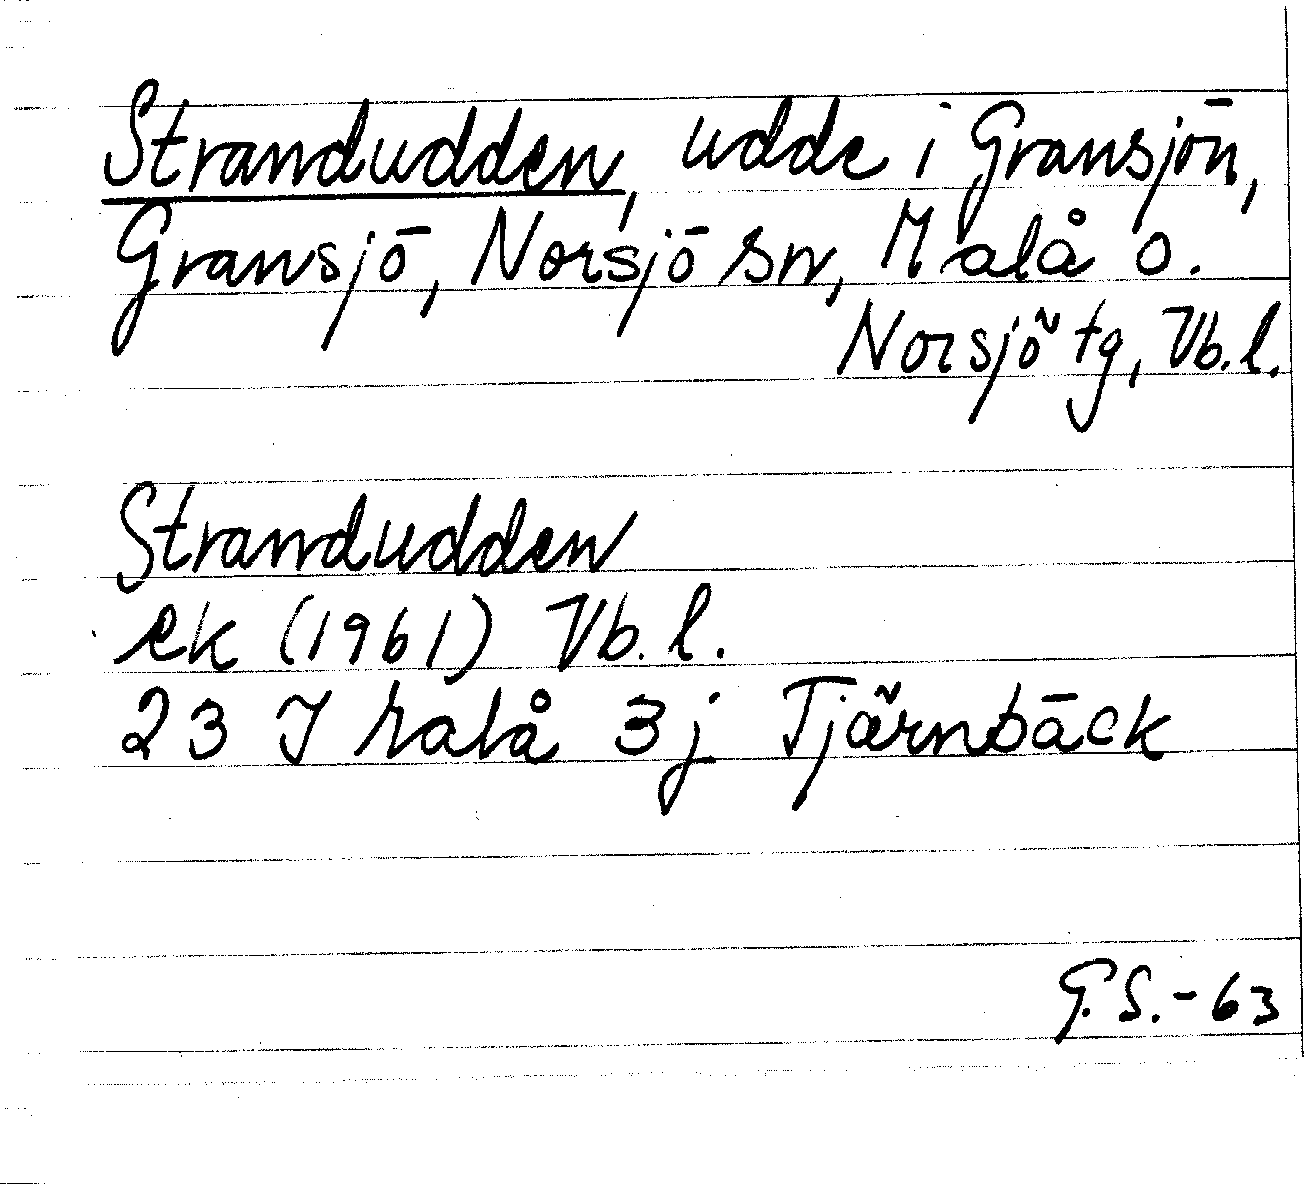 Strandudden, udde i Gransjön,
Gransjö, Norsjö sn, Malå o.
Norsjö tg, Vb. l.
Strandudden
ek (1961) Vb. l.
23 I Malå 3j Tjärnbäck
G. S. - 63